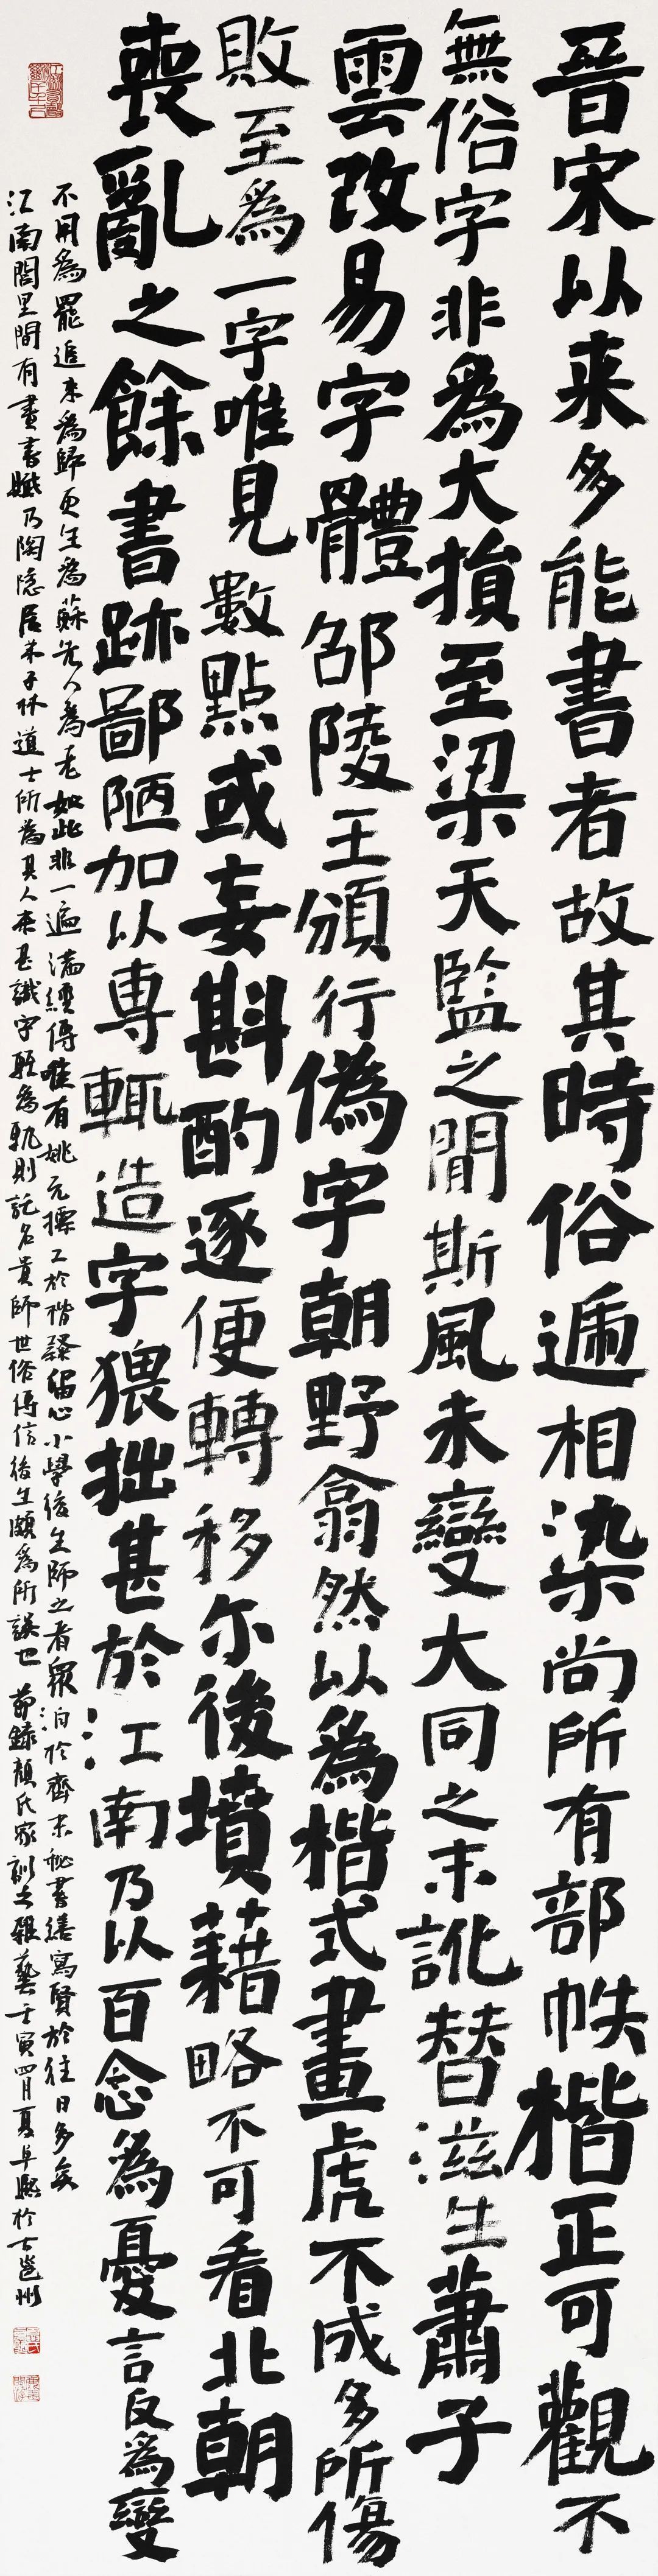 晉宋以来多能書者故其時俗遞相染尚所有部帙楷正可觀不
無俗字非為大損至梁天監之間斯風未變大同之末訛替滋生蕭子
雲改易字體邵陵王頒行偽字朝野翕然以為楷式畫虎不成多所傷
敗至為一字唯見數點或妄斟酌逐便轉移尓後墳藉略不可看北朝
喪亂之餘書跡鄙陋加以専輒造字猥拙甚於江南乃以百念為憂言反為變
不用為罷追来為歸更生為蘇先人為老如此非一遍滿經傳唯有姚元標工於楷隸留心小學後生師之者眾洎於齊末秘書繕寫賢於往日多矣
江南閭里間有畫書賦乃陶隱居弟子杜道士所為其人未甚識字輕為軌則託名貴師世俗傳信後生頗為所誤也 節錄顏氏家訓之雜藝壬寅四月夏阜熙於古邕州